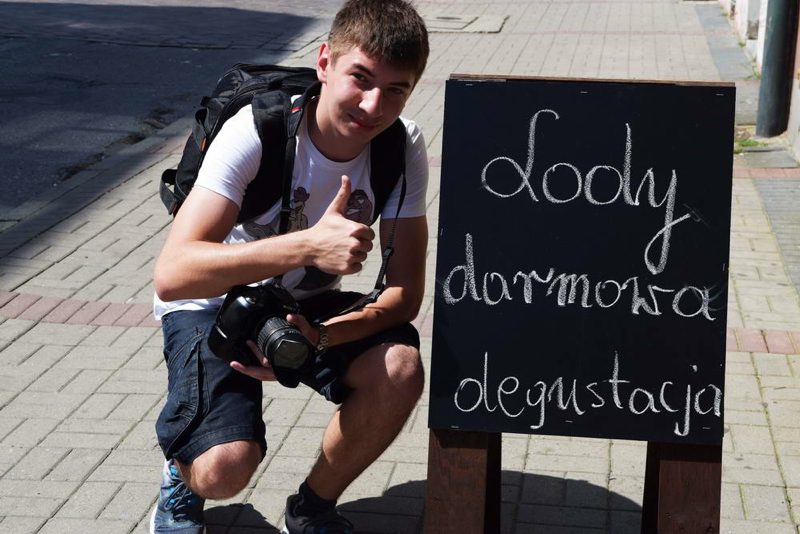 Lody
darmowa
degustacja